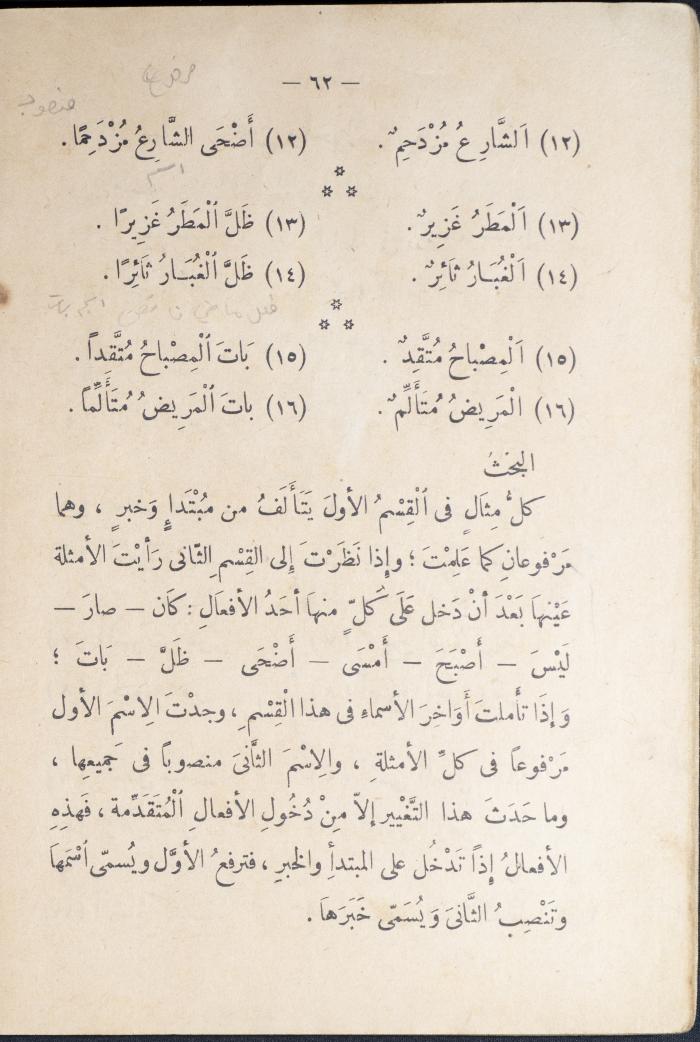 مرفوع
— ٦٢ —
منصوب
(١٢) اَلشَّارِعُ مُزْدَحِمٌ . (١٢) أَضْحَى الشَّارِعُ مُزْدَحِمًا .
اسم
(١٣) اَلْمَطَرُ غَزِيرٌ . (١٣) ظَلَّ ٱلْمَطَرُ غَزِيرًا .
(١٤) اَلْغُبَارُ ثَائِرٌ . (١٤) ظَلَّ ٱلْغُبَارُ ثَائِرًا .
فعل ماضي
(١٥) اَلْمِصْباحُ مُتَّقِدٌ . (١٥) بَاتَ ٱلْمِصْباحُ مُتَّقِداً .
(١٦) الْمَرِيضُ مُتَأَلِّمٌ . (١٦) باتَ ٱلْمَرِيضُ مُتَأَلِّماً .
البحثُ
كلُّ مِثَالٍ فى ٱلْقِسْمُ الأولَ يَتَأَلَفُ من مُبْتَدَإٍ وَخبرٍ ، وهما
مَرْفوعانِ كما عَلِمْتَ ؛ وإِذا نَظَرْتَ إِلى القِسْمِ الثّانى رَأيْتَ الأمثلة
عَيْنهاَ بَعْدَ أنْ دَخل عَلَى كلٍّ منهاَ أحَدُ الأفعاَلِ : كاَن — صارَ —
لَيْسَ — أَصْبَحَ — أَمْسَى — أَضْحَى — ظَلَّ — بَاتَ ؛
وَإذَا تأملتَ أَوَاخِرَ الأسماءِ فى هذا الْقِسْمِ ، وجدْتَ الِاسْمَ الأول
مَرْفوعاً فى كلِّ الأمثلةِ ، والِاسْمَ الثَّانىَ منصوباً فى جَميعِها ،
وما حَدَثَ هذا التَّغْيير إلاّ مِنْ دُخُولِ الأفعالِ ٱلْمُتَقَدِّمة ، فَهذِهِ
الأفعالُ إِذاً تَدْخُل على المبتدأِ والخبرِ ، فترفعُ الأوَّل ويُسمّى ٱسْمَهاَ
وتَنْصِبُ الثَّانىَ وَيُسَمّى خَبَرَهاَ .